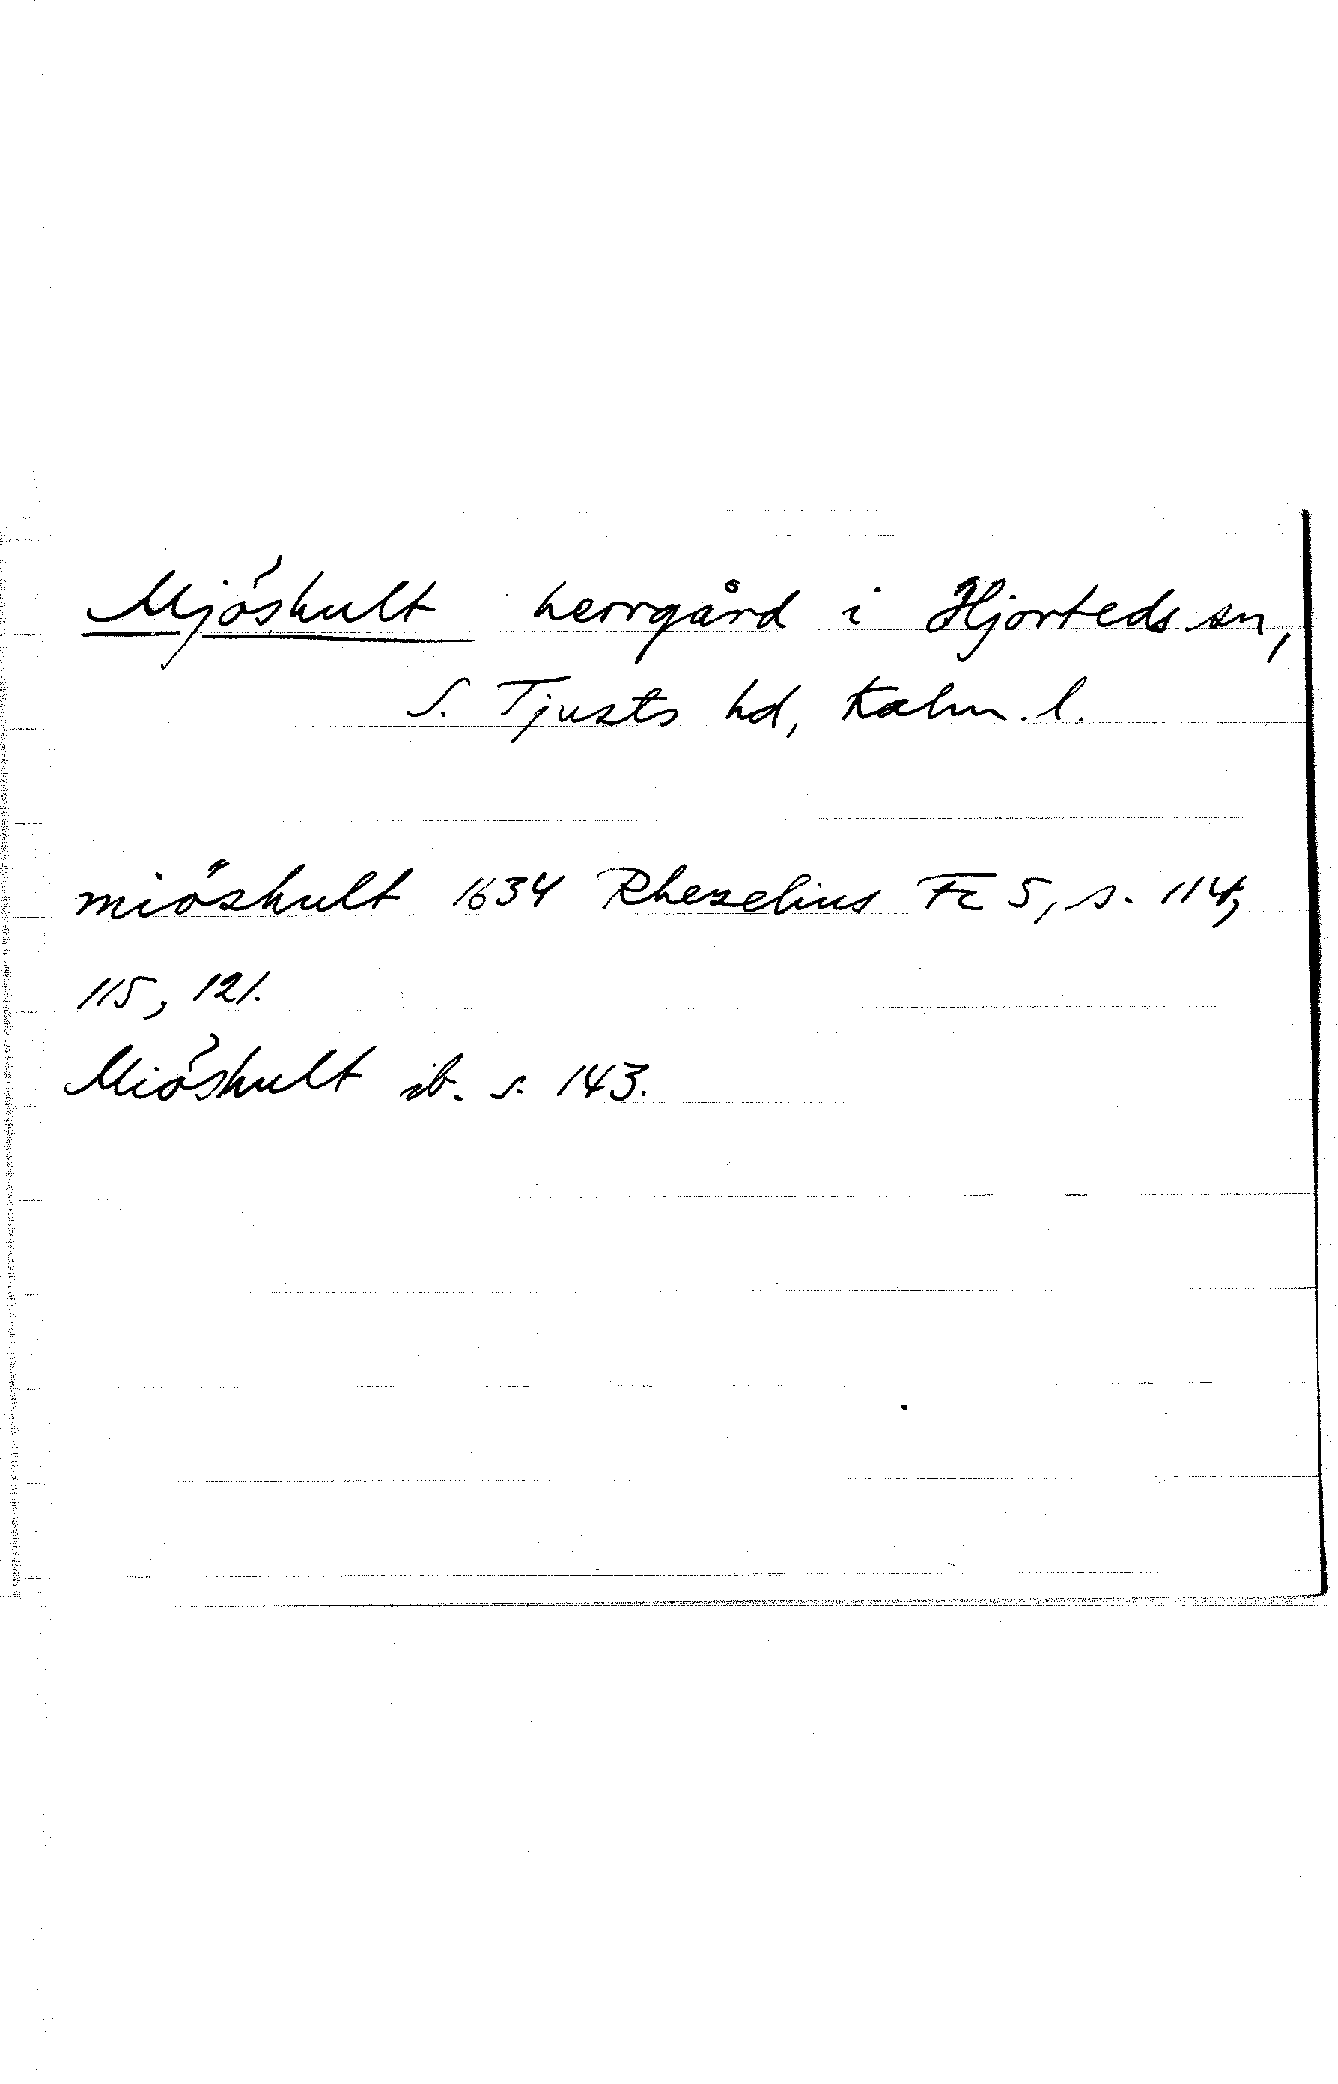 Mjöshult herrgård i Hjorteds sn,
S. Tjusts hd, Kalm. l.
miöshult 1634 Rhezelius Fc 5, s. 114,
115, 121.
Miöshult ib. s. 143.